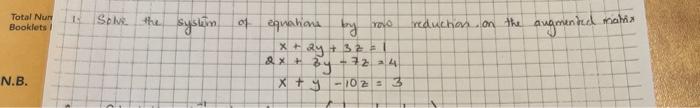 Total Num
Booklets
1. Solve the system of equations by row reduction on the augmented matrix
x + 2y + 3z = 1
2x + 3y - 7z = 4
N.B.
x + y - 10z = 3